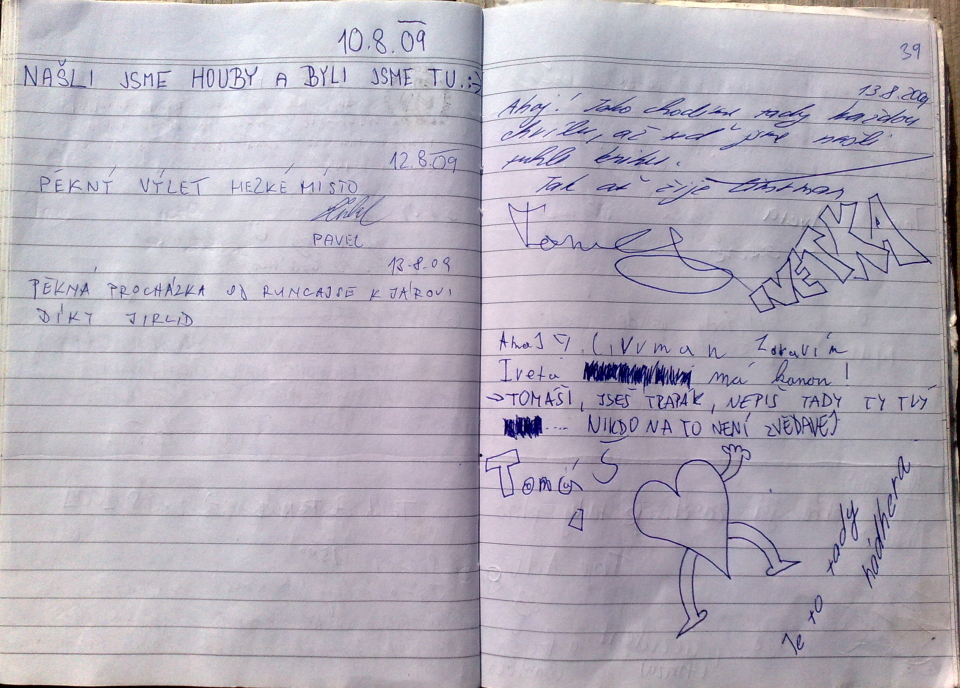 10.8.09
NAŠLI JSME HOUBY A BYLI JSME TU. :-)
12.8.09
PĚKNÝ VÝLET HEZKÉ MÍSTO
PAVEL
13.8.09
PĚKNÁ PROCHÁZKA OD RUMCAJSE K JÁROVI
DÍKY
39
13.8.2009
Ahoj! Jako chodíme tady každou
chvílu, až teď jsme našli
tuhle knihu.
Tak ať žije
Tomáš
NETKA
Ahoj Zdravím
Iveta má kanon!
→TOMÁŠI, JSEŠ TRAPÁK, NEPIŠ TADY TY TVÝ
.... NIKDO NA TO NENÍ ZVĚDAVEJ
Tomáš
Je to tady
nádhera